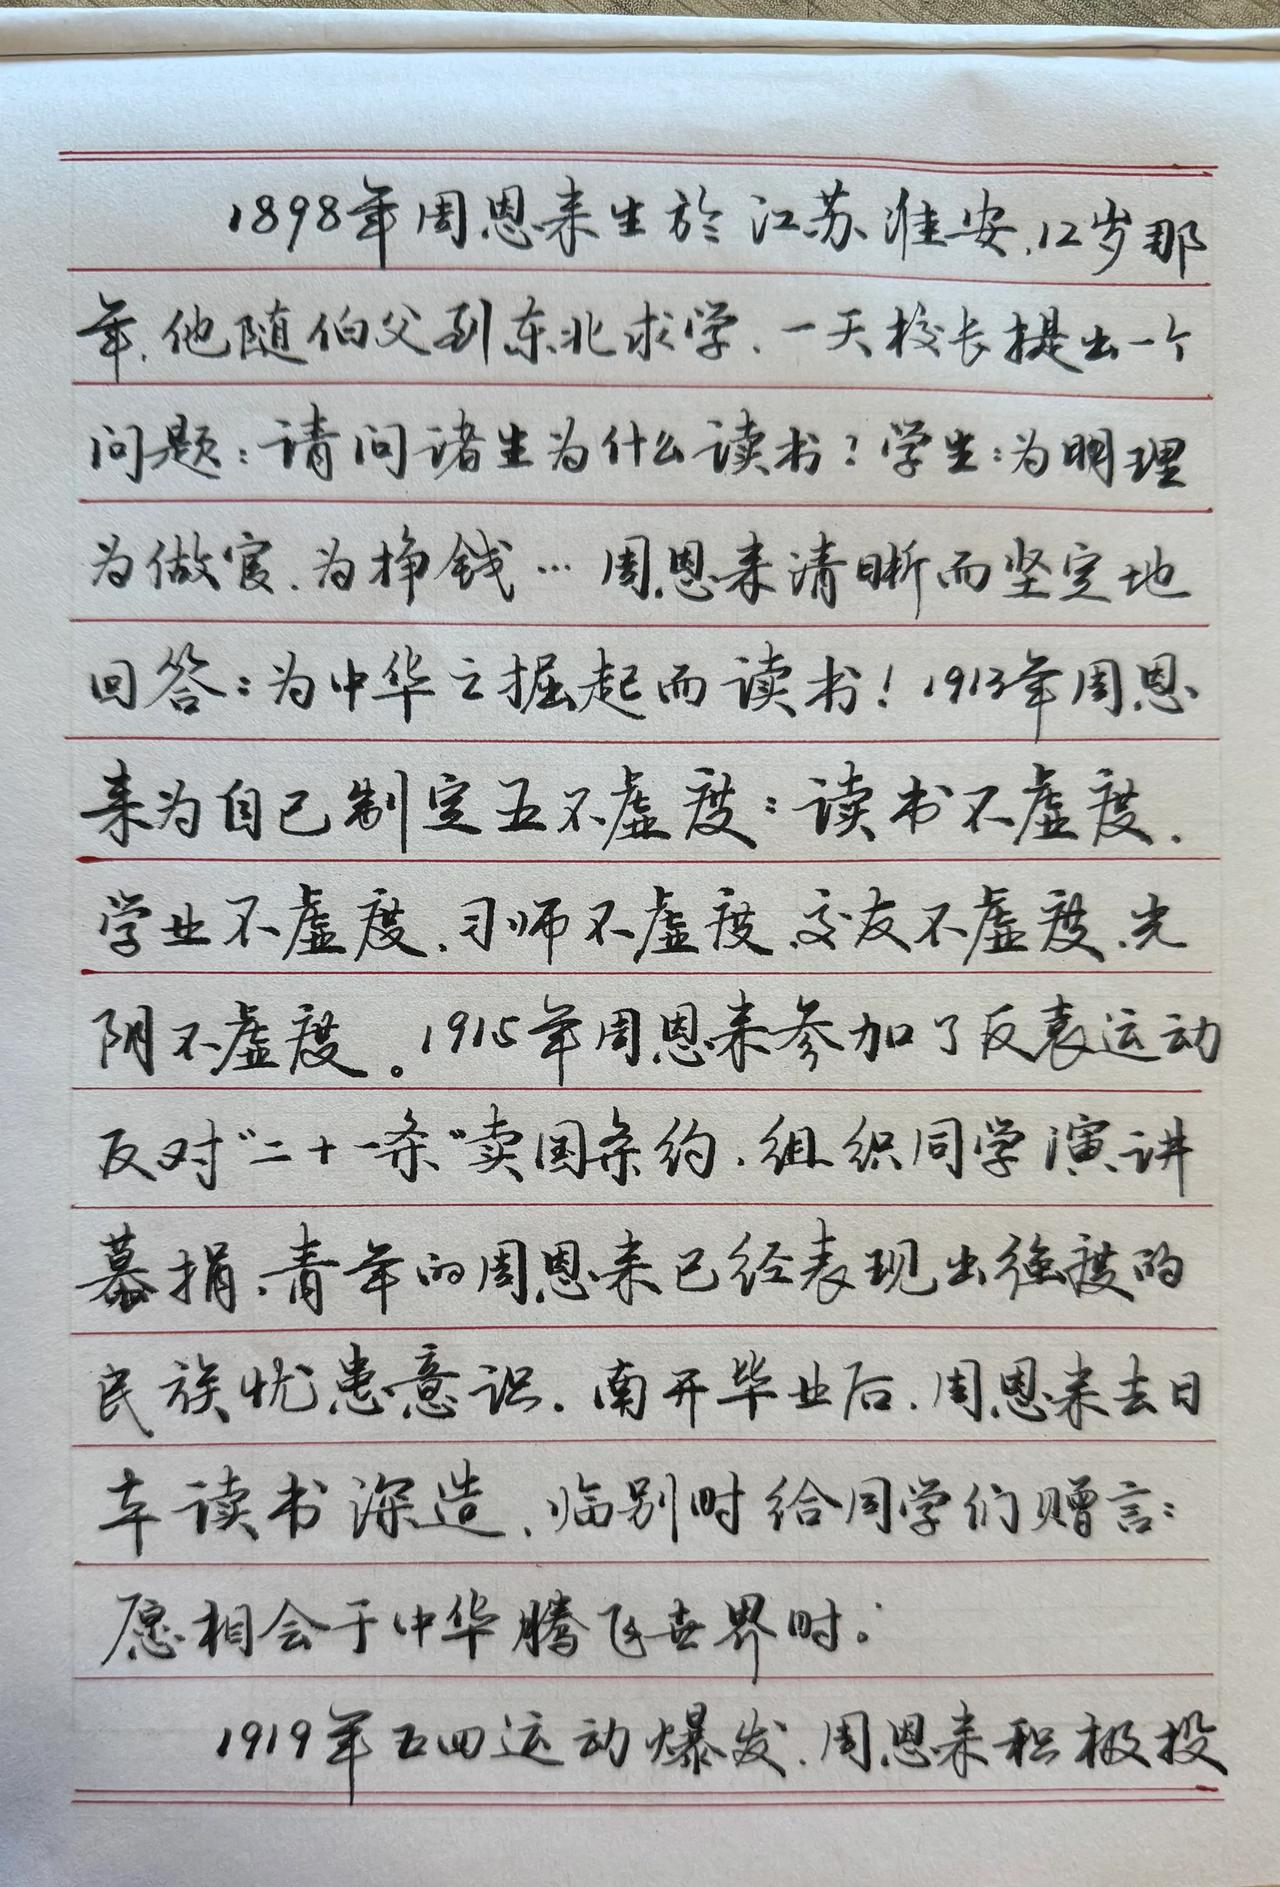 1898年周恩来生於江苏淮安，12岁那
年，他随伯父到东北求学，一天校长提出一个
问题：请问诸生为什么读书？学生：为明理
为做官、为挣钱…周恩来清晰而坚定地
回答：为中华之掘起而读书！1913年周恩
来为自己制定五不虚度：读书不虚度、
学业不虚度、习师不虚度、交友不虚度、光
阴不虚度。1915年周恩来参加了反袁运动
反对“二十一条”卖国条约，组织同学演讲
募捐，青年的周恩来已经表现出强度的
民族忧患意识。南开毕业后，周恩来去日
本读书深造，临别时给同学们赠言：
愿相会于中华腾飞世界时。
1919年五四运动爆发，周恩来积极投